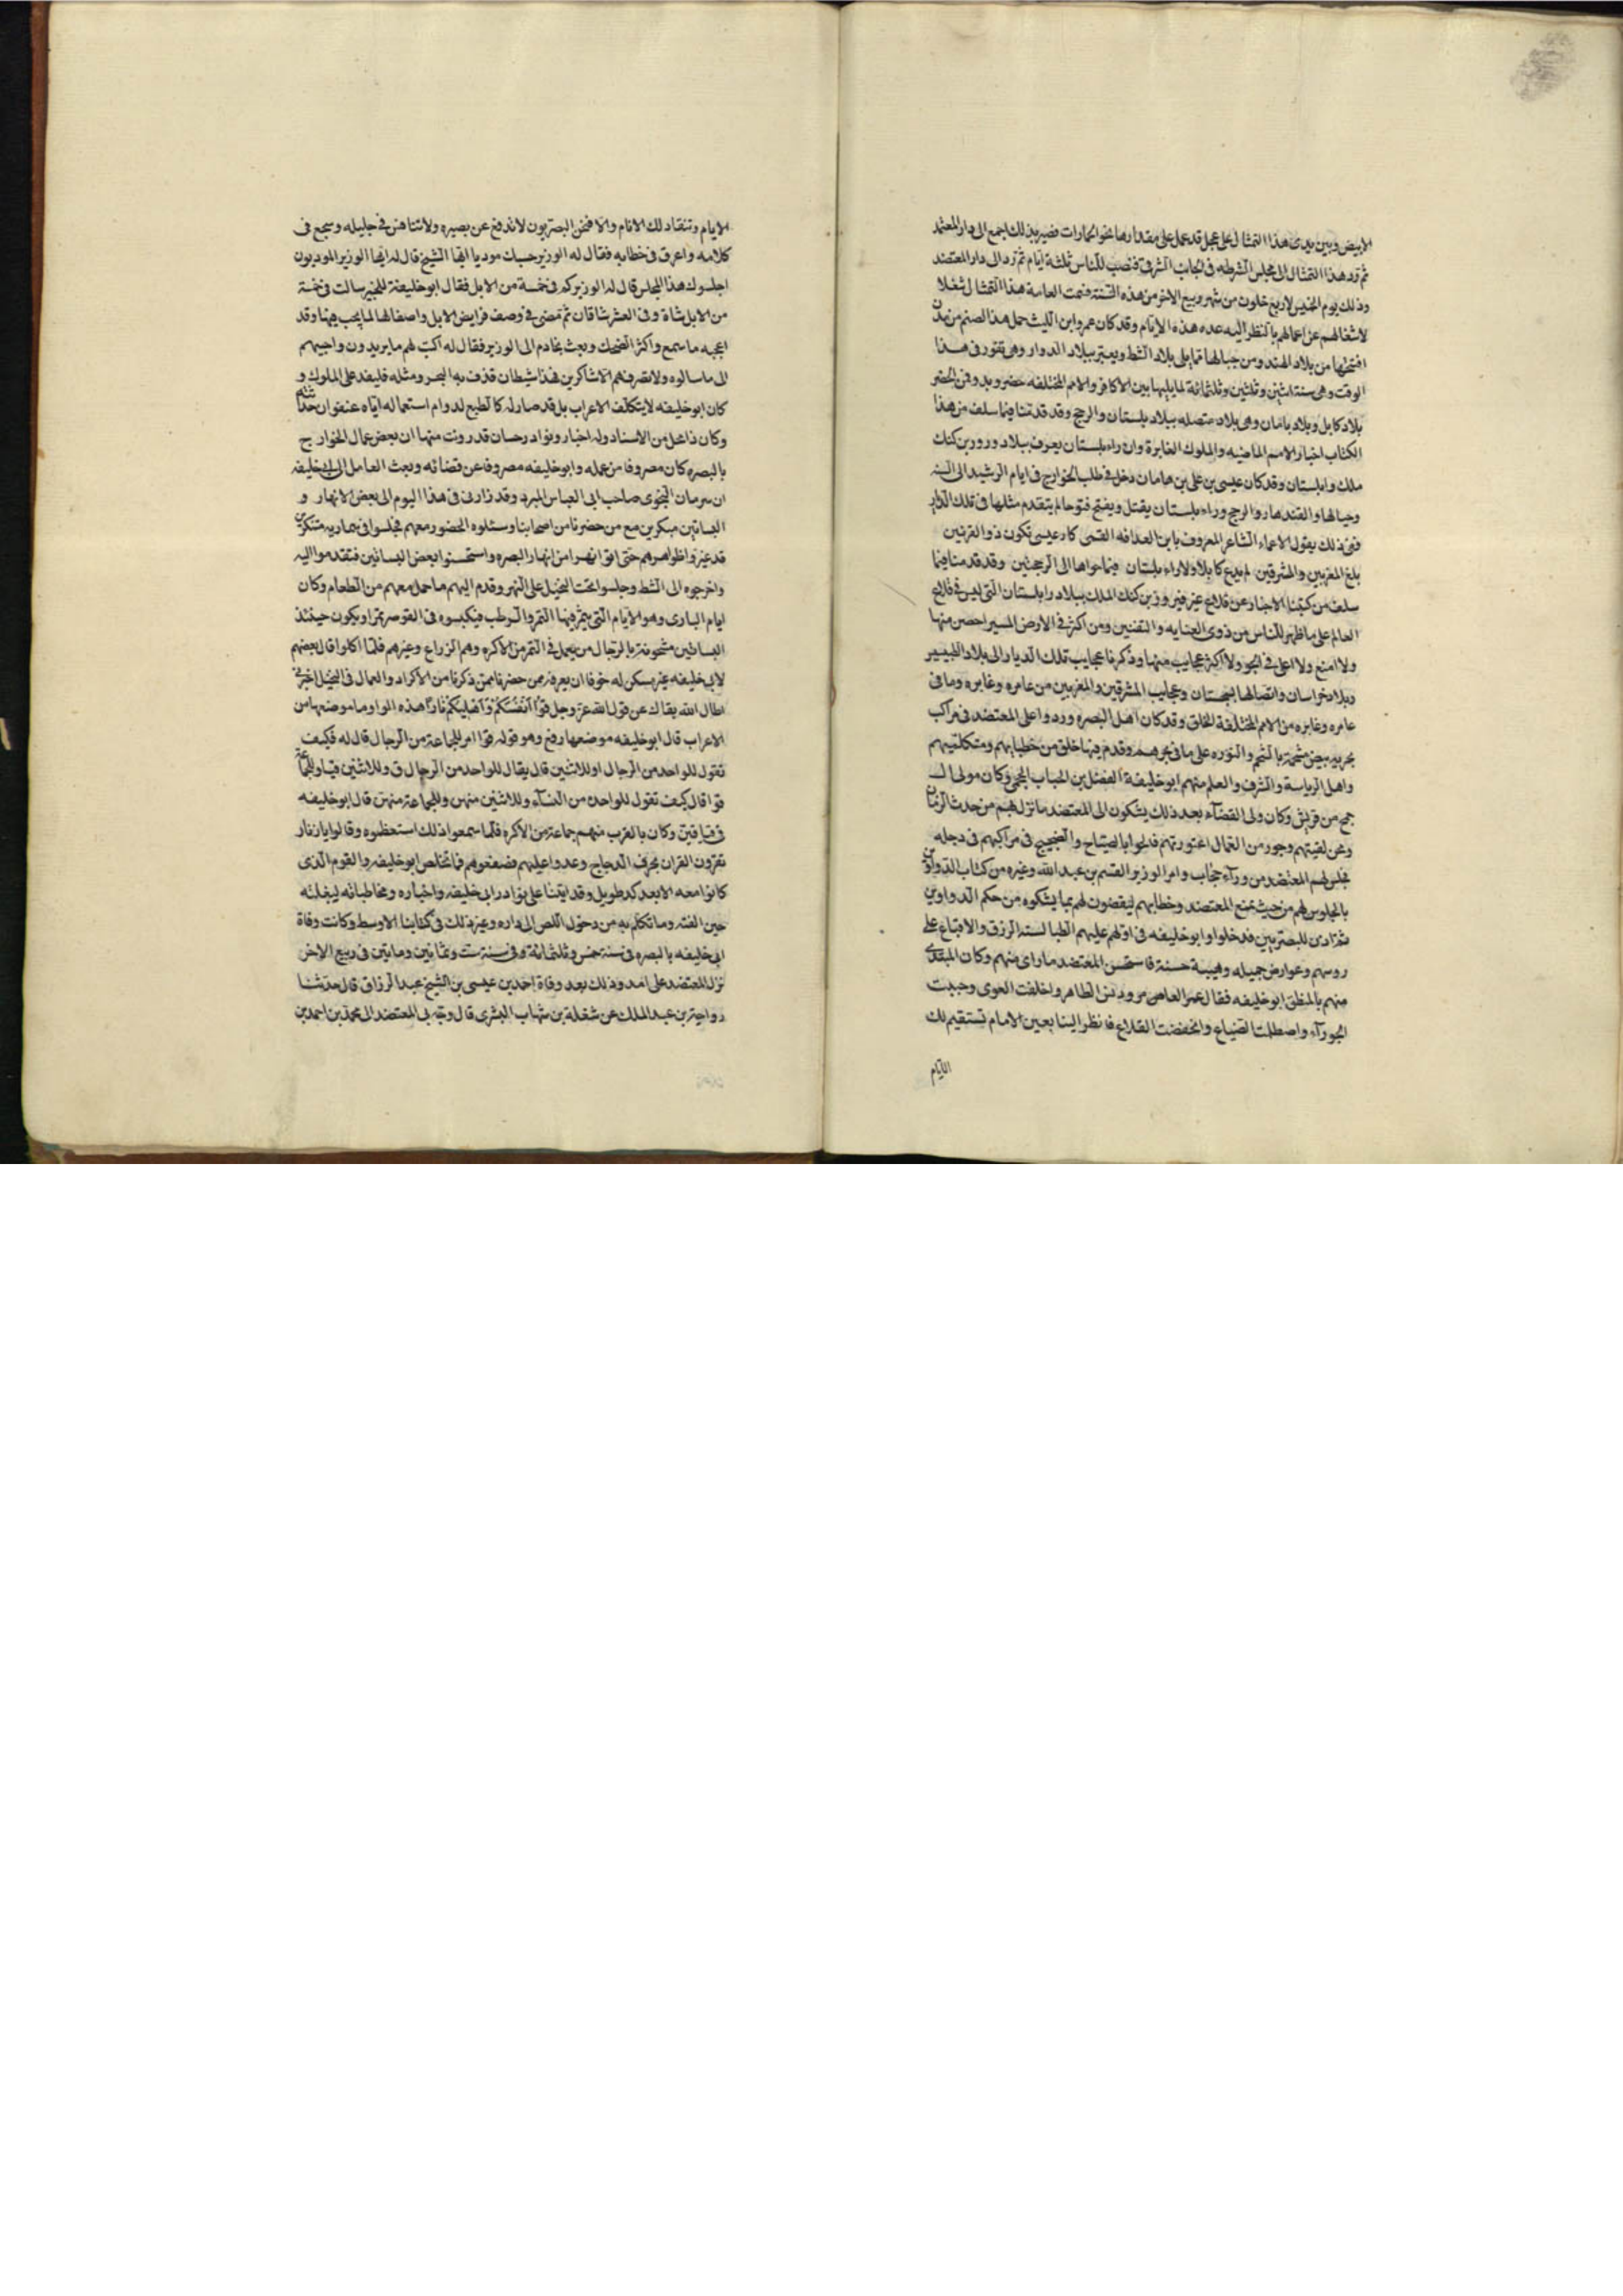 الابيض وبين يدى هذا التمثال على عجل قد عمل على مقدارها نحو الجمازات فصير بذلك اجمع الى دار المعتضد
ثم رد هذا التمثال الى مجلس الشرطه فى الجانب الشرقى فنصب للناس ثلثة ايام ثم رد الى دار المعتضد
وذلك يوم الخميس لاربع خلون من شهر ربيع الاخر من هذه السنة فسمت العامة هذا التمثال شغلا
لاشغالهم عن اعمالهم بالنظر اليه عده هذه الايام وقد كان عمرو ابن الليث حمل هذا الصنم من مدن
افتتحها من بلاد الهند ومن جبالها مما يلى بلاد الشط وبلاد الدوار وهى ثغور فى هذا
الوقت وهى سنة اثنتين وثلثين وثلثمائة لما يليها بين الاكافر والامم المختلفه حضر وبدو فمن الحضر
بلاد كابل وبلاد بامان وهى بلاد متصله ببلاد بلستان والرخج وقد قدمنا فيما سلف من هذا
الكتاب اخبار الامم الماضيه والملوك الغابرة وان راء بلستان يعرف ببلاد وروز بن كنك
ملك وابلستان وقد كان عيسى بن على بن هامان دخل فى طلب الخوارج فى ايام الرشيد الى السند
وجبالها والقندهار والرخج وراء بلستان يقتل ويفتح فتوحا لم يتقدم مثلها فى تلك الديار
ففى ذلك يقول الاعماء الشاعر المعروف بابن العذافه القمى كاد عيسى يكون ذو القرنين
بلغ المغربين والمشرقين لم يدع كابلا ولا راء بلستان فيما حواها الى الرخجين وقد قدمنا فيما
سلف من كتبنا الاخبار عن قلاع عز فيروز بن كنك الملك ببلاد رابلستان التى ليس فى قلاع
العالم على ما ظهر للناس من ذوى العنايه والتفنين ومن اكثر فى الارض المسير احصن منها
ولا امنع ولا اعلى فى الجو ولا اكثر عجايب منها وذكرنا عجايب تلك الديار الى بلاد الطبسير
وبلاد خراسان واتصالها بسجستان وعجايب المشرقين والمغربين من عامره وغابره وما فى
عامره وغابره من الامم المختلفة الخلق وقد كان اهل البصره وردوا على المعتضد فى مراكب
بحريه بيض مشحمة بالشحم والنوره على ما فى بحرهم وقدم فيها خلق من خطبايهم ومتكلميهم
واهل الرياسة والشرف والعلم منهم ابو خليفة الفضل بن الحباب الجمحى وكان مولى ال
جمح من قريش وكان ولى القضاء بعد ذلك يشكون الى المعتضد ما نزل بهم من حدث الزمان
ومحن لقيتهم وجور من العمال اعتورتهم فلجوا بالصياح والضجيج فى مراكبهم فى دجله
فجلس لهم المعتضد من وراء حجاب وامر الوزير القسم بن عبد الله وغيره من كتاب الدواوين
بالجلوس لهم من حيث يسمع المعتضد وخطابهم ليقضون لهم بما يشكوه من حكم الدواوين
ثم اذن للبصريين فدخلوا وابو خليفه فى اولهم عليهم الطيالسة الزرق والاقباع على
روسهم وعوارض جميله وهيبة حسنة فاستحسن المعتضد ما راى منهم وكان المبتدى
منهم بالمنطق ابو خليفه فقال عمر العامر ودثر الظاهر واخلفت العوى وخبيت
الجوزآء واصطلمت الضياع وانخفضت القلاع فانظر الينا بعين الامام تستقيم لك
الايام
الايام وتنقاد لك الانام والا فنحن البصريون لا ندفع عن بصيره ولا نتنافس فى جليله وسجع فى
كلامه واغرق فى خطابه فقال له الوزير حسبك موديا ايها الشيخ قال له ايها الوزير الموديون
اجلسوك هذا المجلس قال له الوزير كم فى خمسة من الابل فقال ابو خليفة للخبير سالت فى خمسة
من الابل شاة وفى العشر شاتان ثم مضى فى وصف فرايض الابل واصفا لها لما يجب فيها وقد
اعجبه ما سمع واكثر الضحك وبعث بخادم الى الوزير فقال له اكتب لهم ما يريدون واجبهم
الى ما سالوه ولا تصرفهم الا شاكرين فهذا شيطان قذف به البحر ومثله فليفد على الملوك و
كان ابو خليفه لا يتكلف الاعراب بل قد صار له كالطبع لدوام استعماله اياه عنفوان حداثته
وكان ذا محل من الاسناد وله اخبار ونوادر حسان قد رويت منها ان بعض عمال الخوارج
بالبصره كان مصروفا من عمله وابو خليفه مصروفا عن قضائه وبعث العامل الى ابى خليفه
ان سرمان النحوى صاحب ابى العباس المبرد وقد زارنى فى هذا اليوم الى بعض الانهار و
البساتين مبكرين مع من حضرنا من اصحابنا وسئلوه الحضور معهم فجلسوا فى سماريه متنكرين
قد غيروا ظواهرهم حتى اتوا نهرا من انهار البصره واستحسنوا بعض البساتين فتقدموا اليه
واخرجوه الى الشط وجلسوا تحت النخيل على النهر وقدم اليهم ما حمل معهم من الطعام وكان
ايام البارى وهو الايام التى يثمر فيها التمر والرطب فيكبسوه فى القوصر تمرا ويكون حينئذ
البساتين مشحونة بالرجال ممن يعمل فى التمر من الاكره وهم الزراع وغيرهم فلما اكلوا قال بعضهم
لابى خليفه غير مسكن له خوفا ان يعرفه ممن حضرنا ممن ذكرنا من الاكراد والعمال فى النخيل اخبرنى
اطال الله بقاك عن قول الله عز وجل قُوٓا أَنفُسَكُمْ وَأَهْلِيكُمْ نَارًا هذه الواو ما موضعها من
الاعراب قال ابو خليفه موضعها رفع وهو قوله قوا امر للجماعة من الرجال قال له فكيف
تقول للواحد من الرجال او للاثنين قال يقال للواحد من الرجال ق وللاثنين قيا وللجماعة
قوا قال كيف تقول للواحده من النسآء وللاثنين منهن وللجماعة منهن قال ابو خليفه
قى قيا قين وكان بالقرب منهم جماعة من الاكره فلما سمعوا ذلك استعظموه وقالوا يا زنار
تقرون القران بحرف الدجاج وعدوا عليهم فصفعوهم فما تخلص ابو خليفه والقوم الذى
كانوا معه الا بعد كد طويل وقد اتينا على نوادر ابى خليفه واخباره ومخاطباته لبغلته
حين الفته وما تكلم به من دخول اللص الى داره وغير ذلك فى كتابنا الاوسط وكانت وفاة
ابى خليفه بالبصره فى سنة خمس وثلثمائة وفى سنة ست وثمانين ومايتين فى ربيع الاخر
نزل المعتضد على امد وذلك بعد وفاة احمد بن عيسى بن الشيخ عبد الرزاق قال حدثنا
رواحة بن عبد الملك عن شغلة بن شهاب البشرى قال وجه بى المعتضد الى محمد بن احمد بن